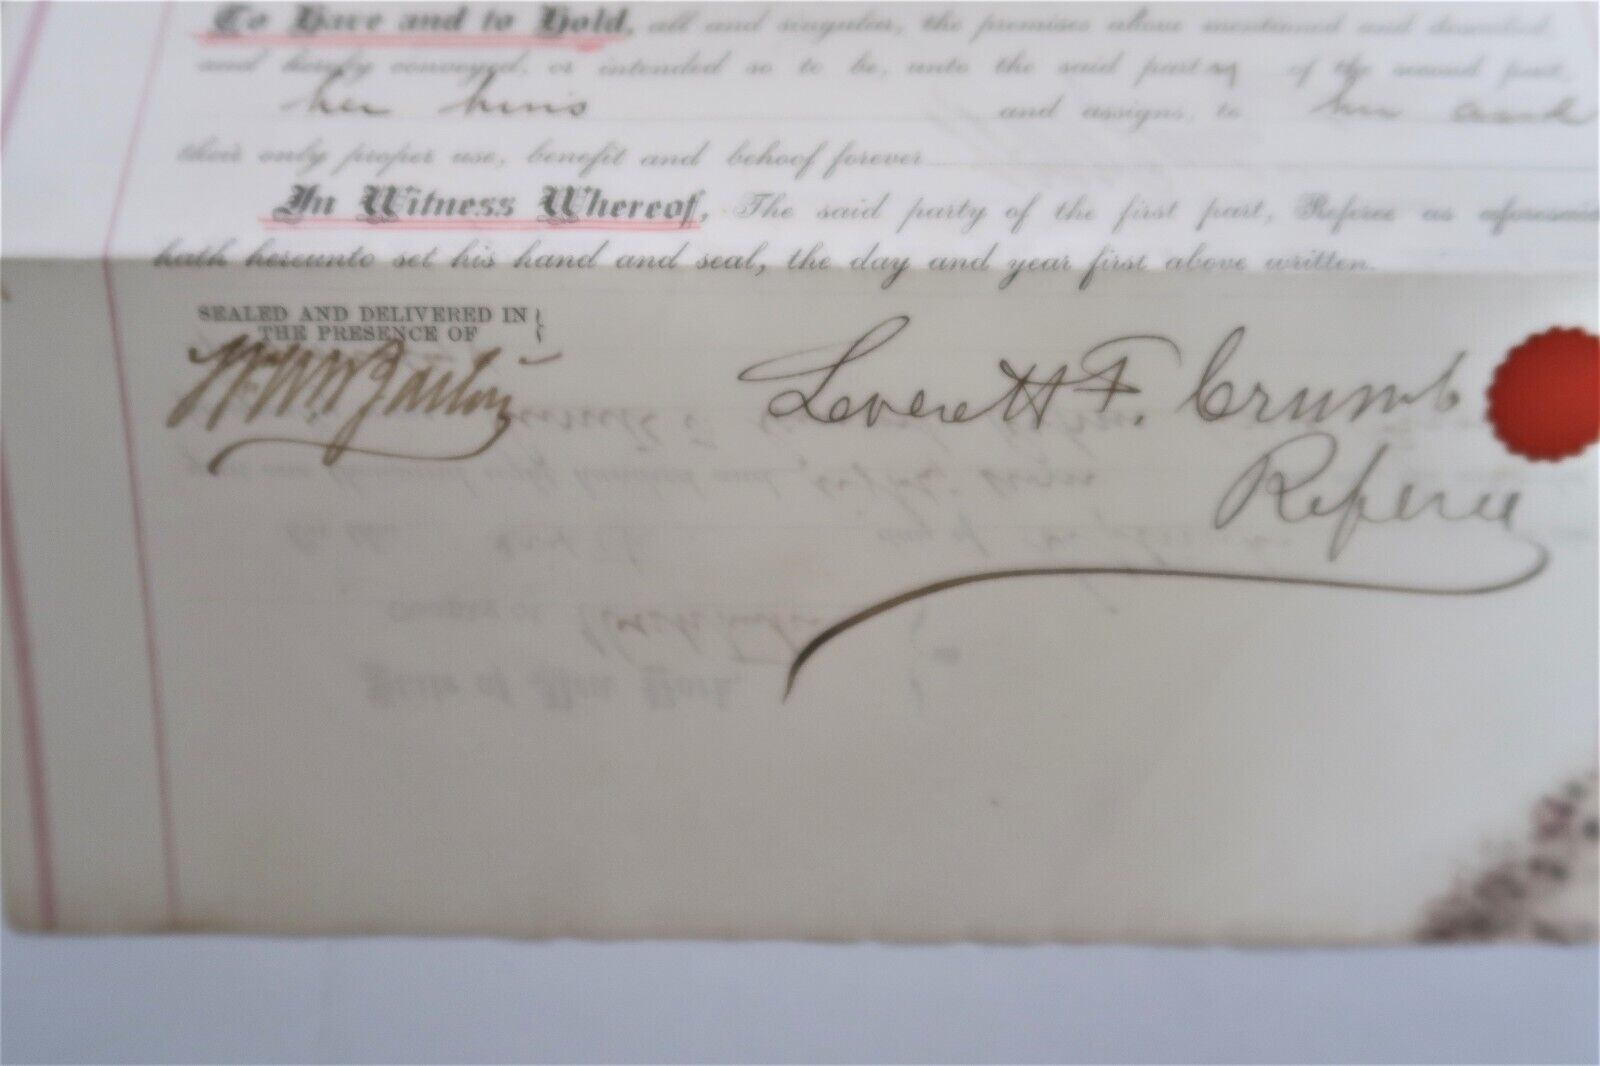 To Have and to Hold, all and singular, the premises above mentioned and described
and hereby conveyed, or intended so to be, unto the said party of the second part,
her heirs and assigns, to her and
their only proper use, benefit and behoof forever
In Witness Whereof, The said party of the first part, Referee as aforesaid
hath hereunto set his hand and seal, the day and year first above written.
SEALED AND DELIVERED IN
THE PRESENCE OF
Leverett F. Crumb
Referee